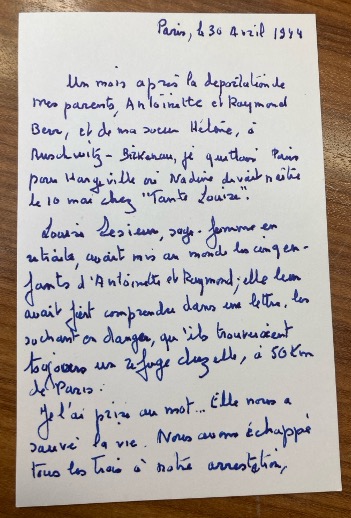 Paris, le 30 Avril 1944
Un mois après la déportation de
mes parents, Antoinette et Raymond
Berr, et de ma soeur Hélène, à
Auschwitz-Birkenau, je quittais Paris
pour Hargeville où Nadine devait naître
le 10 mai chez "Tante Louise".
Louise Lesieur, sage-femme en
retraite, avait mis au monde les cinq en-
fants d'Antoinette et Raymond; elle leur
avait fait comprendre dans une lettre, les
sachant en danger, qu'ils trouveraient
toujours un refuge chez elle, à 50 Km
de Paris.
Je l'ai prise au mot... Elle nous a
sauvé la vie. Nous avons échappé
tous les trois à notre arrestation,